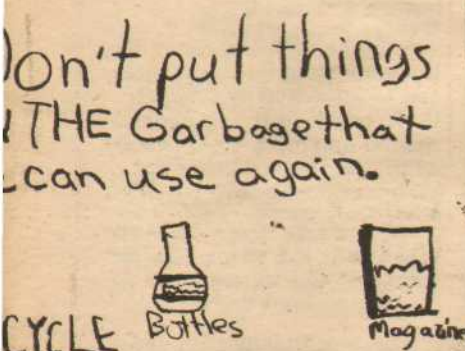 Don't put things
THE Garbage that
can use again.
CYCLE Bottles Magazine